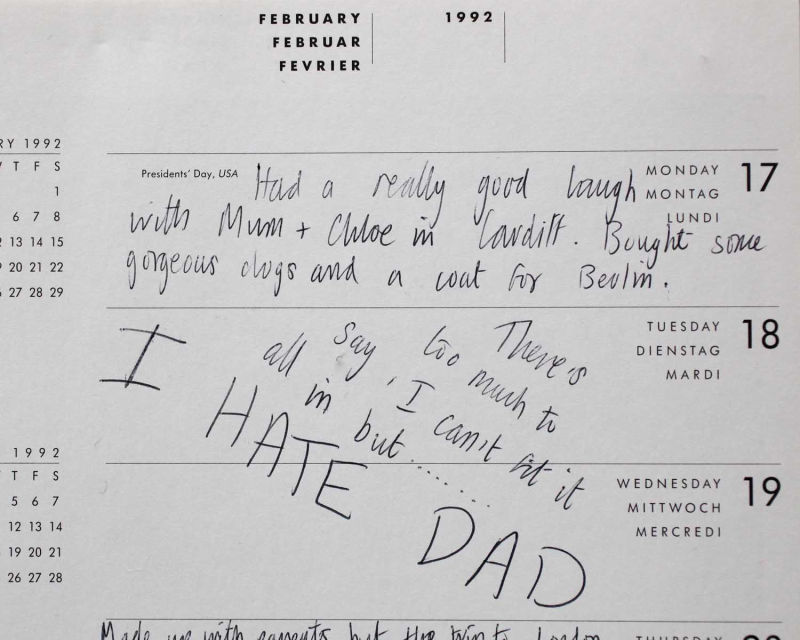 FEBRUARY 1992
FEBRUAR
FEVRIER
RY 1992
T F S
1
6 7 8
13 14 15
19 20 21 22
26 27 28 29
Presidents' Day, USA
MONDAY 17
MONTAG
LUNDI
Had a really good laugh
with Mum + Chloe in Cardiff. Bought some
gorgeous clogs and a coat for Berlin.
TUESDAY 18
DIENSTAG
MARDI
There's
too much to
say, I can't fit it
all in but........
I HATE DAD
1992
T F S
5 6 7
12 13 14
19 20 21
26 27 28
WEDNESDAY 19
MITTWOCH
MERCREDI
Made up with parents but the trip to London
THURSDAY 20